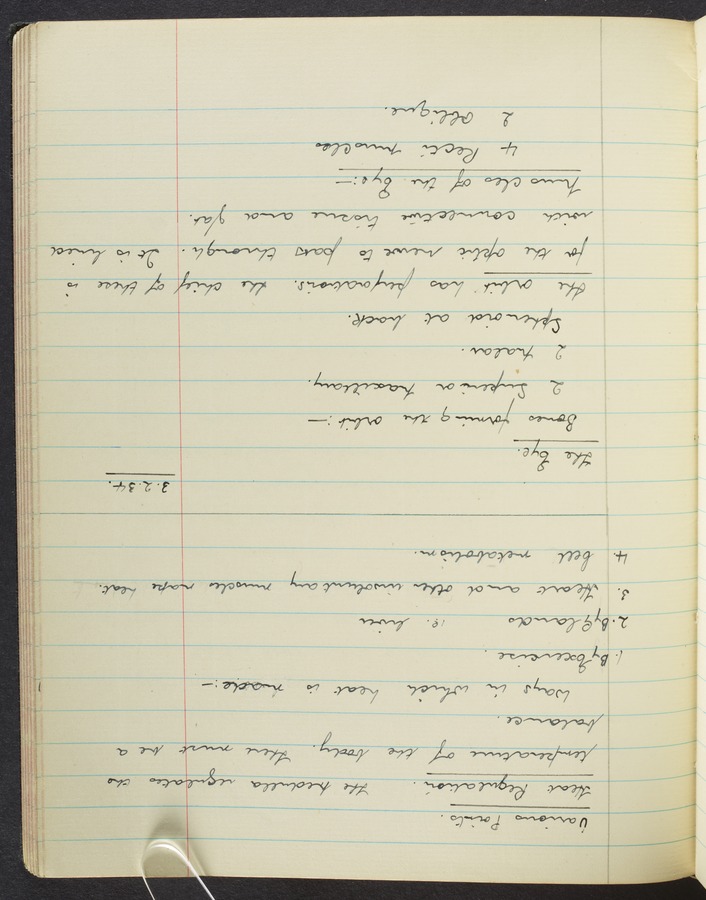 Various Points.
Heat Regulation. The medulla regulates the
temperature of the body. There must be a
balance.
Ways in which heat is made:—
1. By Exercise.
2. By Glands i.e. liver
3. Heart and other involuntary muscles make heat.
4. Cell metabolism.
3.2.34.
The Eye.
Bones forming the orbit:—
2 Superior Maxillary.
2 Malar.
Sphenoid at back.
The orbit has perforations. The chief of these is
for the optic nerve to pass through. It is lined
with connective tissue and fat.
Muscles of the Eye:—
4 Recti muscles
2 Oblique.